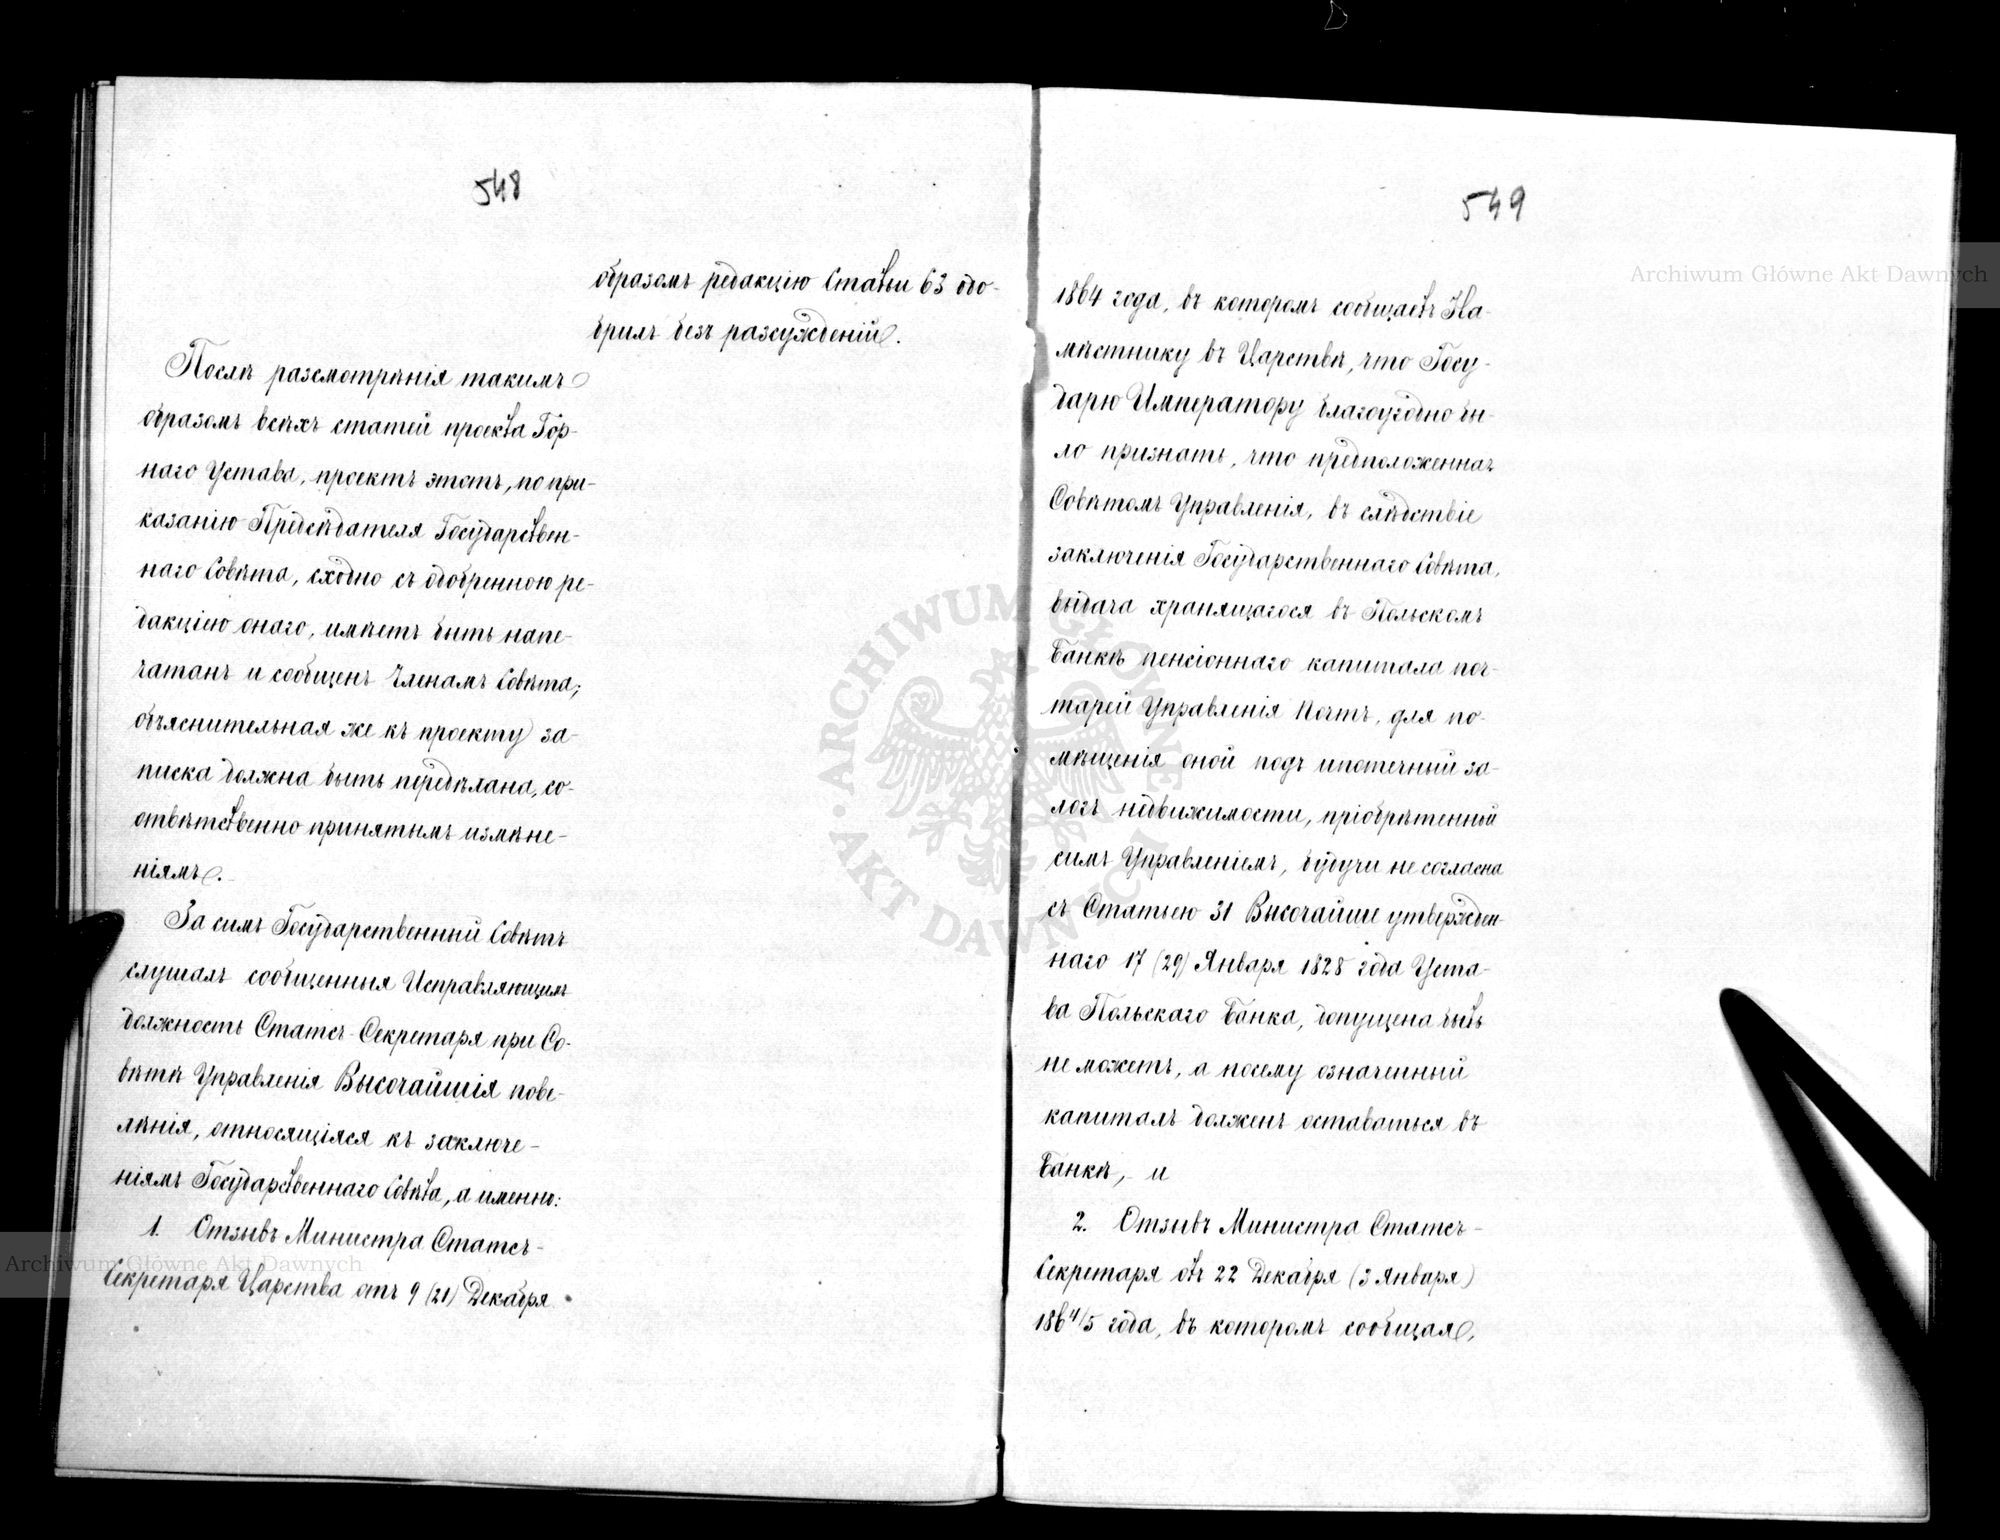 548
образомъ редакцію Статьи 63 одо-
брилъ безъ разсужденій.
Послѣ разсмотрѣнія такимъ
образомъ всѣхъ статей проекта Гор-
наго Устава, проектъ этотъ, по при-
казанію Предсѣдателя Государствен-
наго Совѣта, сходно съ одобренною ре-
дакціею онаго, имѣетъ быть напе-
чатанъ и сообщенъ Членамъ Совѣта;
объяснительная же къ проекту за-
писка должна быть передѣлана, со-
отвѣтственно принятымъ измѣне-
ніямъ.
За симъ Государственный Совѣтъ
слушалъ сообщенныя Исправляющимъ
должность Статсъ-Секретаря при Со-
вѣтѣ Управленія Высочайшія пове-
лѣнія, относящіяся къ заключе-
ніямъ Государственнаго Совѣта, а именно:
1. Отзывъ Министра Статсъ-
Секретаря Царства отъ 9 (21) Декабря
549
1864 года, въ которомъ сообщаетъ На-
мѣстнику въ Царствѣ, что Госу-
дарю Императору благоугодно бы-
ло признать, что предположенная
Совѣтомъ Управленія, въ слѣдствіе
заключенія Государственнаго Совѣта,
выдача хранящагося въ Польскомъ
Банкѣ пенсіоннаго капитала поч-
тарей Управленія Почтъ, для по-
мѣщенія оной подъ ипотечный за-
логъ недвижимости, пріобрѣтенной
симъ Управленіемъ, будучи не согласна
съ Статьею 31 Высочайше утвержден-
наго 17 (29) Января 1828 года Уста-
ва Польскаго Банка, допущена быть
не можетъ, а посему означенный
капиталъ долженъ оставаться въ
Банкѣ, и
2. Отзывъ Министра Статсъ-
Секретаря отъ 22 Декабря (3 Января)
1864/5 года, въ которомъ сообщая,
Archiwum Główne Akt Dawnych
Archiwum Główne Akt Dawnych
ARCHIWUM GŁÓWNE AKT DAWNYCH